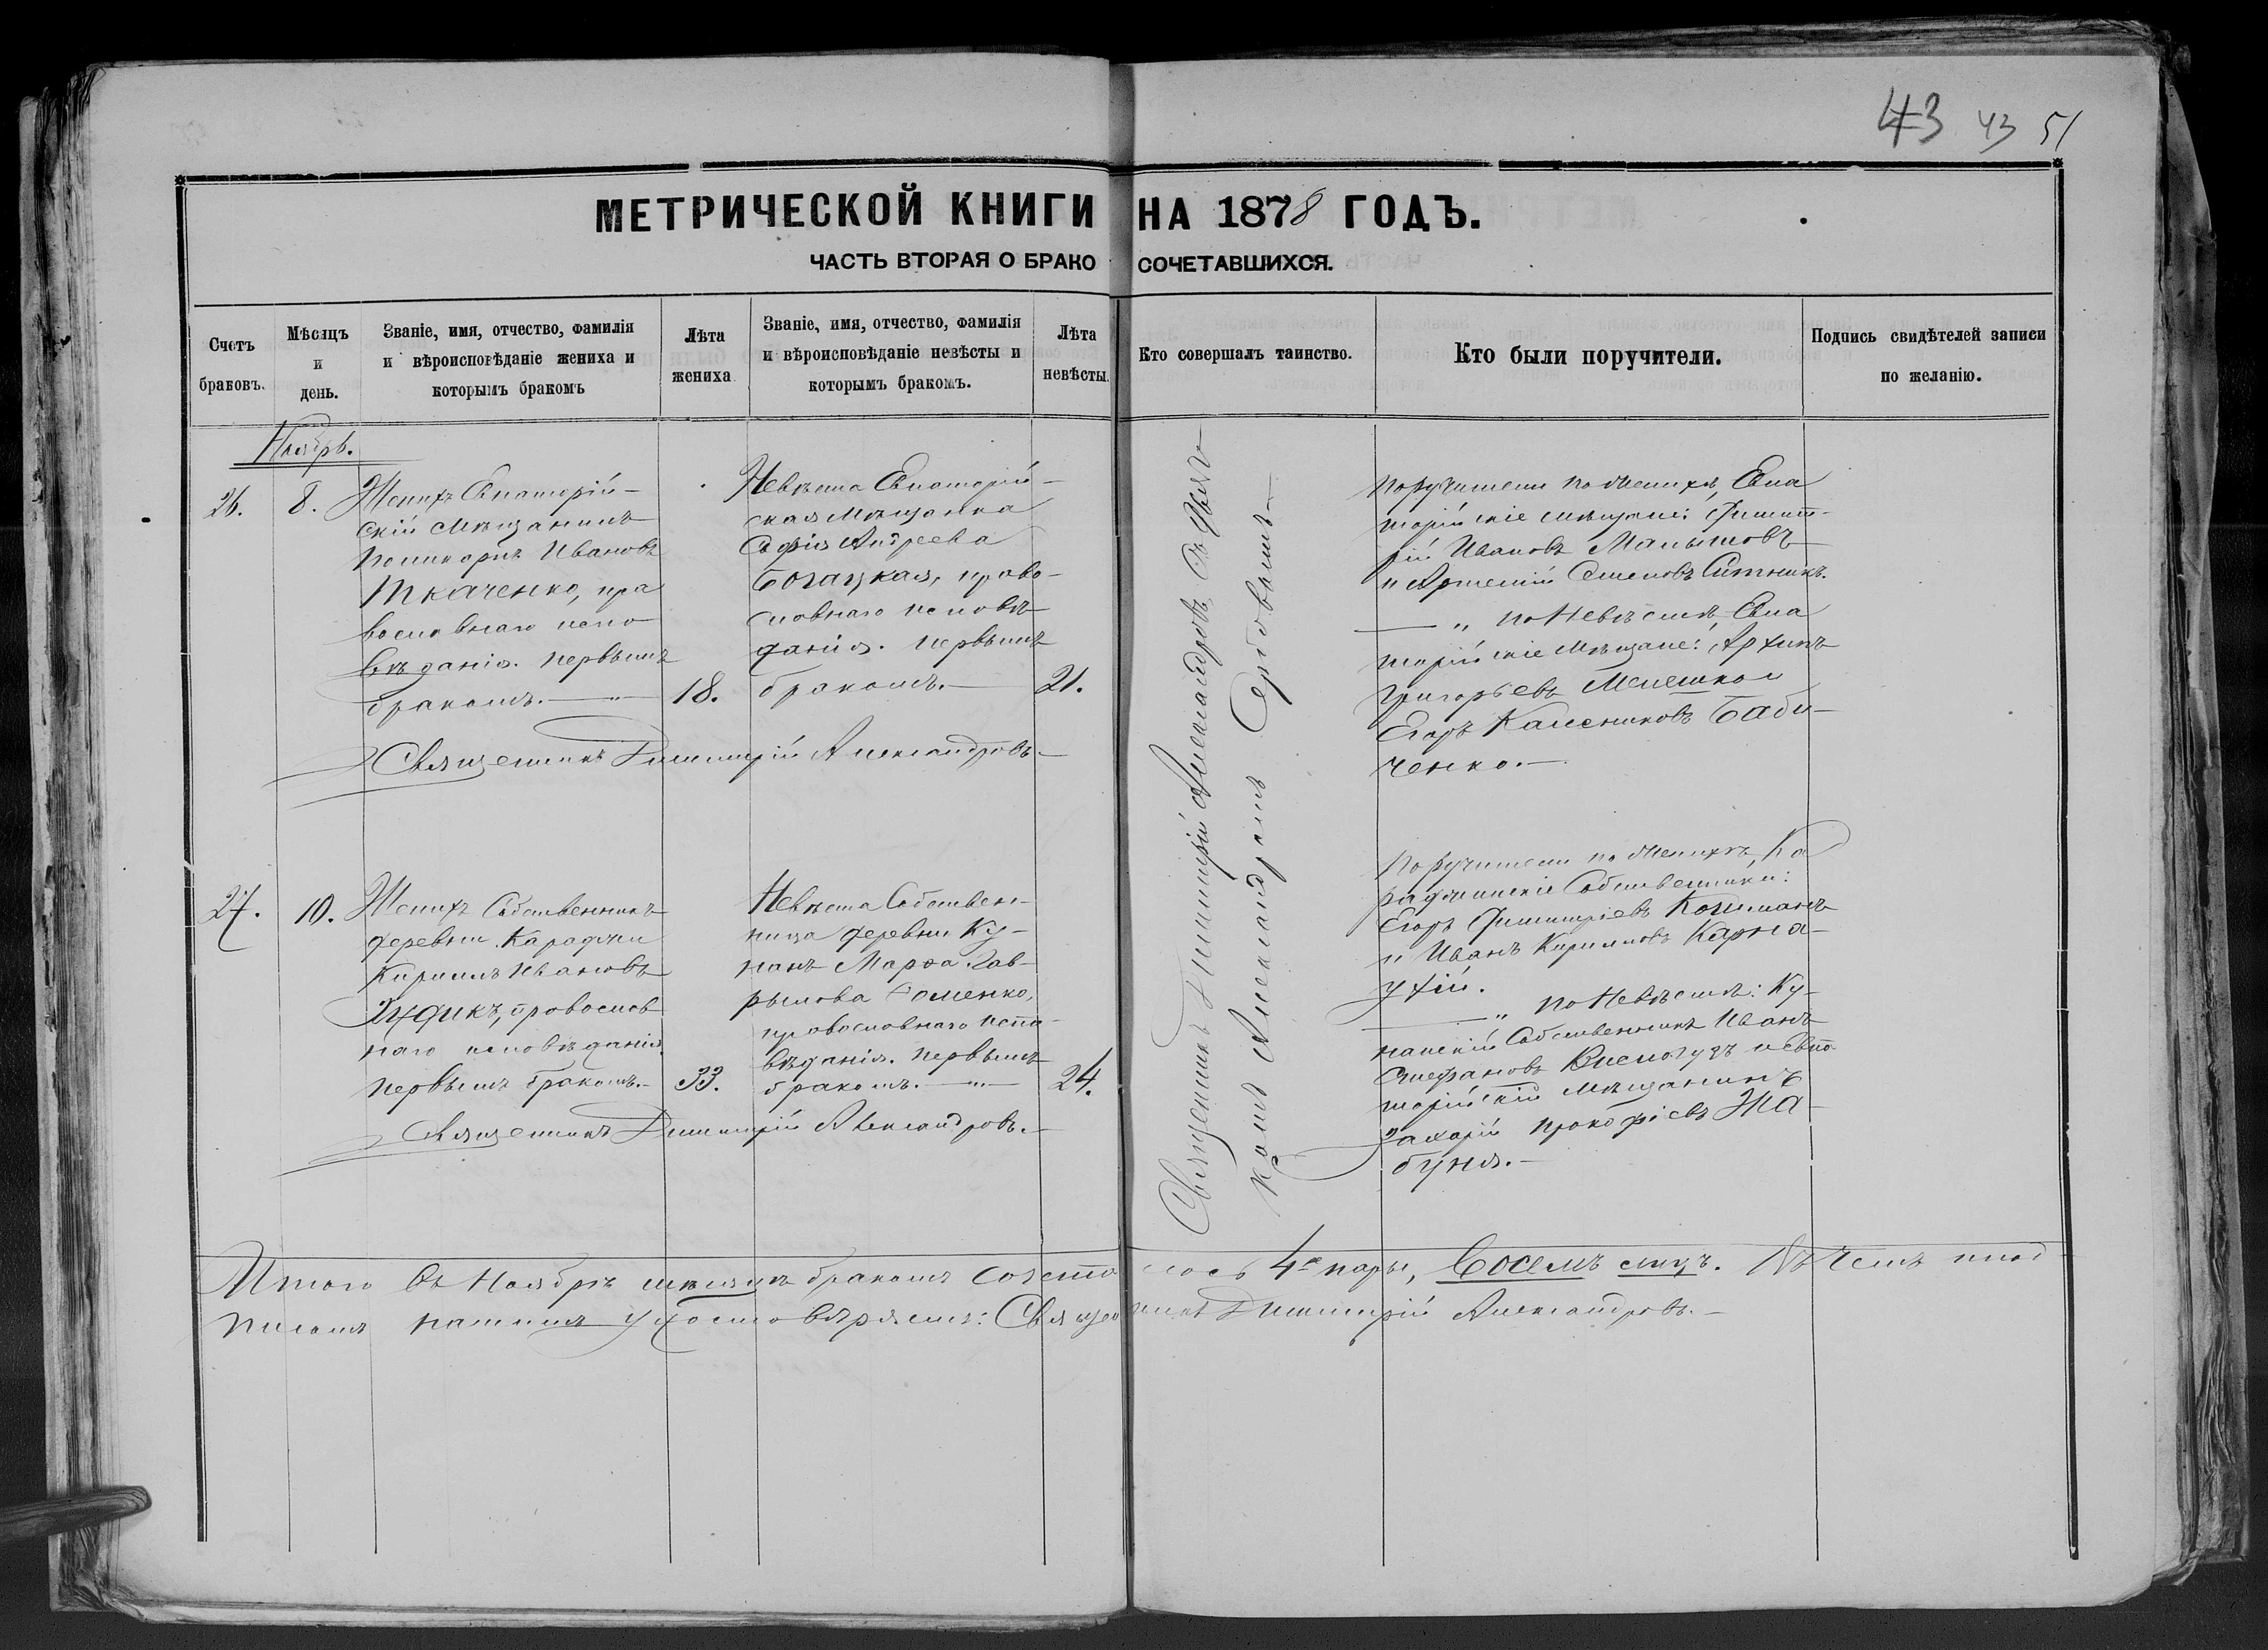 43 43 51
МЕТРИЧЕСКОЙ КНИГИ НА 1878 ГОДЪ.
ЧАСТЬ ВТОРАЯ О БРАКОСОЧЕТАВШИХСЯ.
Счетъ браковъ.
Мѣсяцъ и день.
Званіе, имя, отчество, фамилія и вѣроисповѣданіе жениха и которымъ бракомъ
Лѣта жениха
Званіе, имя, отчество, фамилія и вѣроисповѣданіе невѣсты и которымъ бракомъ.
Лѣта невѣсты.
Кто совершалъ таинство.
Кто были поручители.
Подпись свидѣтелей записи по желанію.
Ноябрь.
26.
8.
Женихъ Евпаторій-
скій мѣщанинъ
Поликарпъ Ивановъ
Ткаченко, пра
вославнаго испо
вѣданія. первымъ
бракомъ.
18.
Невѣста Евпаторій-
ская мѣщанка
Софія Андреева
Богацкая, право-
славнаго исповѣ
данія. первымъ
бракомъ.
21.
Священникъ Димитрій Александровъ
Священникъ Димитрій Александровъ съ
Александромъ
Поручители по женихѣ, Евпа
торійскіе мѣщане: Димит-
рій Ивановъ Малышовъ
и Арсеній Семеновъ Ситникъ.
" по Невѣстѣ, Евпа
торійскіе мѣщане: Архипъ
Григорьевъ Мелешко и
Егоръ Калениковъ Баби-
ченко.
27.
10.
Женихъ Собственникъ
деревни Караджи
Кириллъ Ивановъ
православ
наго исповѣданія
первымъ бракомъ.
33.
Невѣста Собствен-
ница деревни Ку-
нанъ Марѳа Гав-
рылова Фоменко,
православнаго испо-
вѣданія. первымъ
бракомъ.
24.
Священникъ Димитрій Александровъ.
Поручители по женихѣ, Ка
раджинскіе Собственники:
Егоръ Димитріевъ
и Иванъ Кирилловъ Карна-
ухій.
" по Невѣстѣ: Ку-
нанскій Собственникъ Иванъ
Стефановъ и Евпа
торійскій мѣщанинъ
Захарій Прокофіевъ Жа
буня.
Итого въ Ноябрѣ мѣсяцѣ бракомъ сочеталось 4е пары, Восемь лицъ. Въ чемъ под
писомъ нашимъ удостовѣряемъ: Священникъ Димитрій Александровъ.